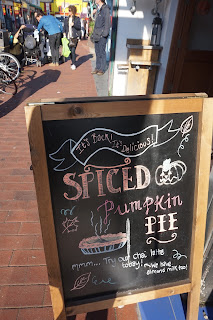 It's Back! It's Delicious!
SPICED
Pumpkin
PIE
mmm... Try our chai latte
today! we have
almond milk too!